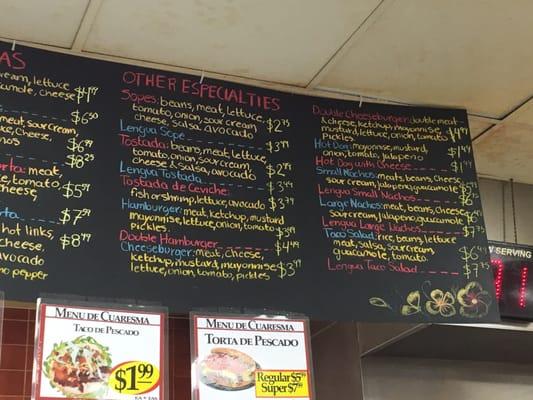 AS
cream, lettuce
cheese $4.99
$6.50
meat, sour cream,
cheese, $6.99
$8.25
meat, tomato,
cheese $5.99
$7.99
hot links,
cheese, $8.99
no pepper
OTHER ESPECIALTIES
Sopes: beans, meat, lettuce,
tomato, onion, sour cream
cheese, salsa, avocado $2.75
Lengua Sope $3.99
Tostada: beans, meat, lettuce,
tomato, onion, sour cream,
cheese, salsa, avocado $2.99
Lengua Tostada $3.49
Tostada de Ceviche:
fish or shrimp, lettuce, avocado $3.79
Hamburger: meat, ketchup, mustard
mayonnise, lettuce, onion, tomato
pickles. $3.99
Double Hamburger $4.49
Cheeseburger: meat, cheese,
ketchup, mustard, mayonnise
lettuce, onion, tomato, pickles $3.99
Double Cheeseburger: double meat
& cheese, ketchup, mayonnise,
mustard, lettuce, onion, tomato
Pickles $4.99
Hot Dog: mayonnise, mustard,
onion, tomato, jalapeno $1.49
Hot Dog with Cheese
Small Nachos: meats, beans, cheese
sour cream, jalapeno, guacamole
Lengua Small Nachos
Large Nachos: meat, beans, cheese
sour cream, jalapeno, guacamole
Lengua Large Nachos
Taco Salad: rice, beans, lettuce
meat, salsa, sour cream
guacamole, tomato
Lengua Taco Salad
SERVING
Menu de Cuaresma
Taco de Pescado
$1.99
Menu de Cuaresma
Torta de Pescado
Regular $5.99
Super $7.99